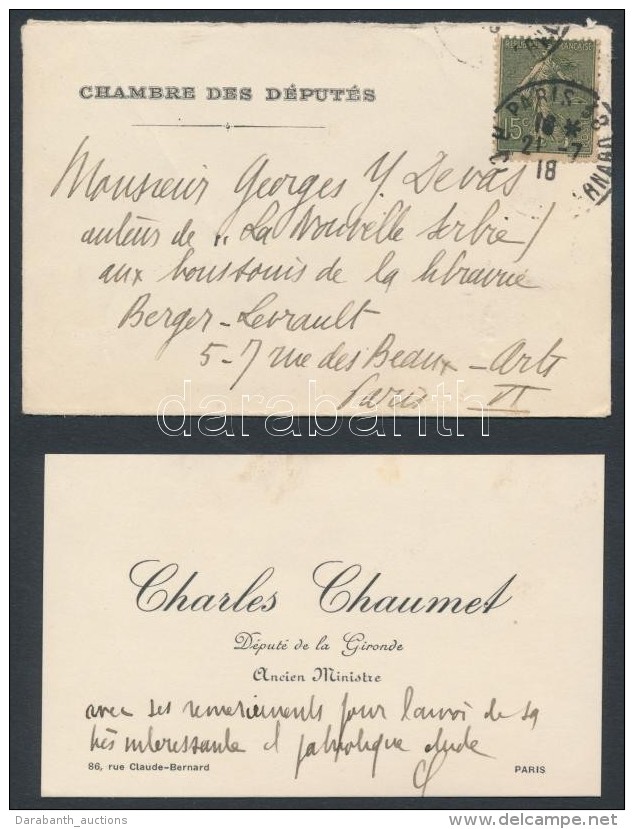 CHAMBRE DES DÉPUTÉS
REPUBLIQUE FRANÇAISE
15c
PARIS
18 *
21 -7
18
Monsieur Georges Y. Devas
auteur de „La Nouvelle Serbie"
aux bons soins de la librairie
Berger-Levrault
5-7 rue des Beaux-Arts
Paris VI
darabanth
Charles Chaumet
Député de la Gironde
Ancien Ministre
avec ses remerciements pour l'envoi de sa
très intéressante et patriotique étude
86, rue Claude-Bernard
PARIS
Darabanth_auctions
delcampe.net